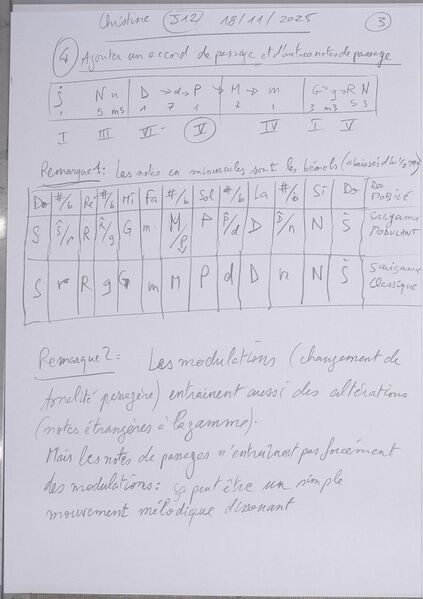 Christine J12 18/11/2025 3
4 Ajouter un accord de passage et d'autres notes de passage
Ṡ N n D → d → P → M → m G → g → R N
1 5 m5 1 7 1 2 1 3 m3 5 3
I III VI- V IV I V
Remarque 1: Les notes en minuscules sont les bémols (abaissés d'un 1/2 ton)
Do #/b Ré #/b Mi Fa #/b Sol #/b La #/b Si Do Do MOBILE
S Ŝ/r R R̂/g G m M/P P P̂/d D D̂/n N Ṡ Sargama MODULANT
S r R g G m M P d D n N Ṡ Sargama Classique
Remarque 2: Les modulations (changement de
tonalité passagère) entraînent aussi des altérations
(notes étrangères à la gamme).
Mais les notes de passages n'entraînent pas forcément
des modulations: ça peut être un simple
mouvement mélodique dissonant